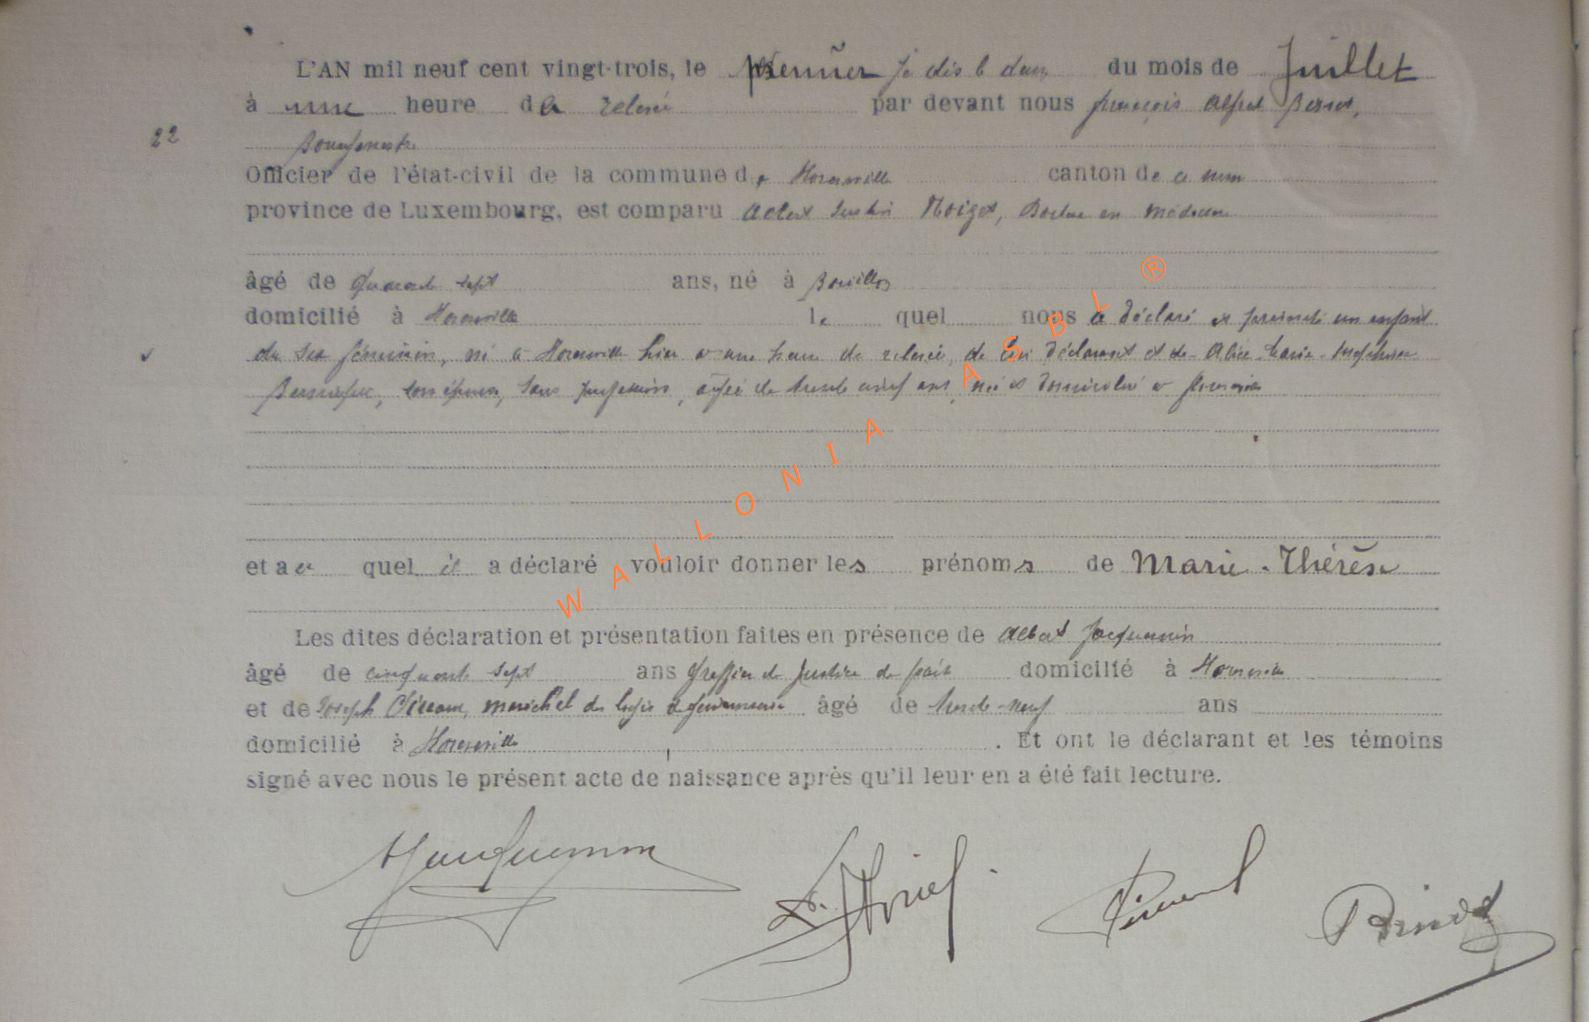 L'AN mil neuf cent vingt-trois, le premier je dis le deux du mois de Juillet
à une heure de la relevée par devant nous françois Alfred
22
Bourgmestre
Officier de l'état-civil de la commune de canton de a nom
province de Luxembourg, est comparu Docteur en médecine
âgé de quarante sept ans, né à Bouillon
domicilié à le quel nous a déclaré et présenté un enfant
du sex féminin, né à hier a une heure de relevée, de lui déclarant et de Alice Marie Joséphine
son épouse, sans profession, agée de trente neuf ans, née et domiciliée a
et au quel il a déclaré vouloir donner les prénoms de Marie-Thérèse
Les dites déclaration et présentation faites en présence de Albert Jacquemin
âgé de cinquante sept ans Greffier de Justice de paix domicilié à
et de Joseph maréchal des logis de gendarmerie âgé de trente-neuf ans
domicilié à . Et ont le déclarant et les témoins
signé avec nous le présent acte de naissance après qu'il leur en a été fait lecture.
WALLONIA ASBL ®